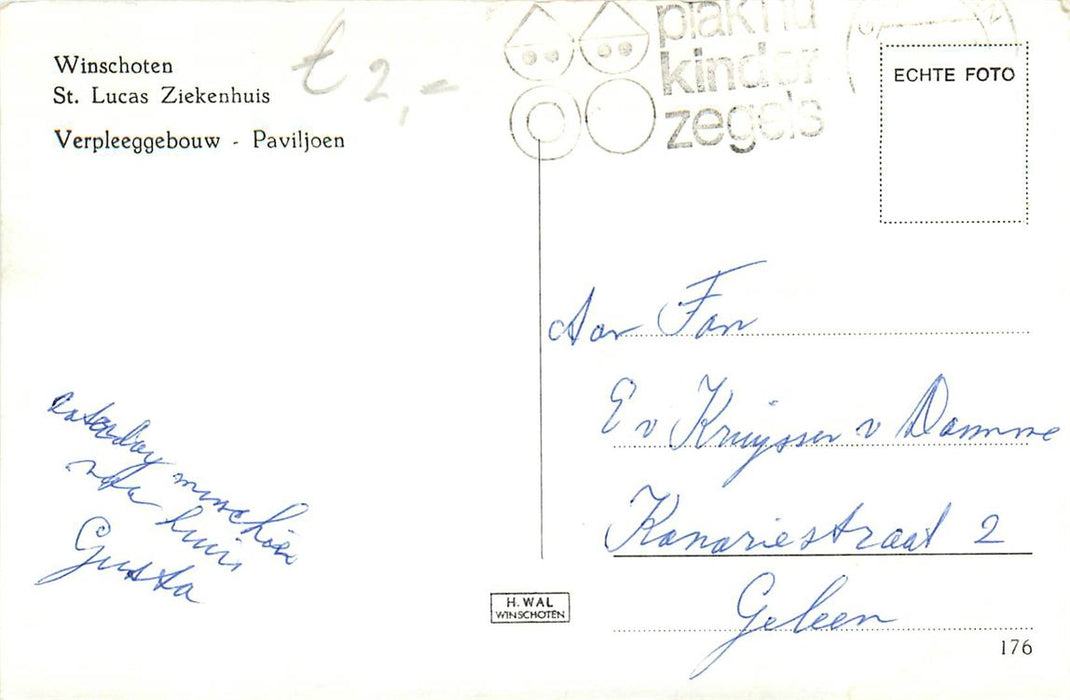 Winschoten
St. Lucas Ziekenhuis
Verpleeggebouw - Paviljoen
€ 2,-
plak nu
kinder
zegels
ECHTE FOTO
Aan Fam
E v Kruijssen v Damme
Kanariestraat 2
Geleen
zaterdag misschien
naar huis
Gusta
H. WAL
WINSCHOTEN
176